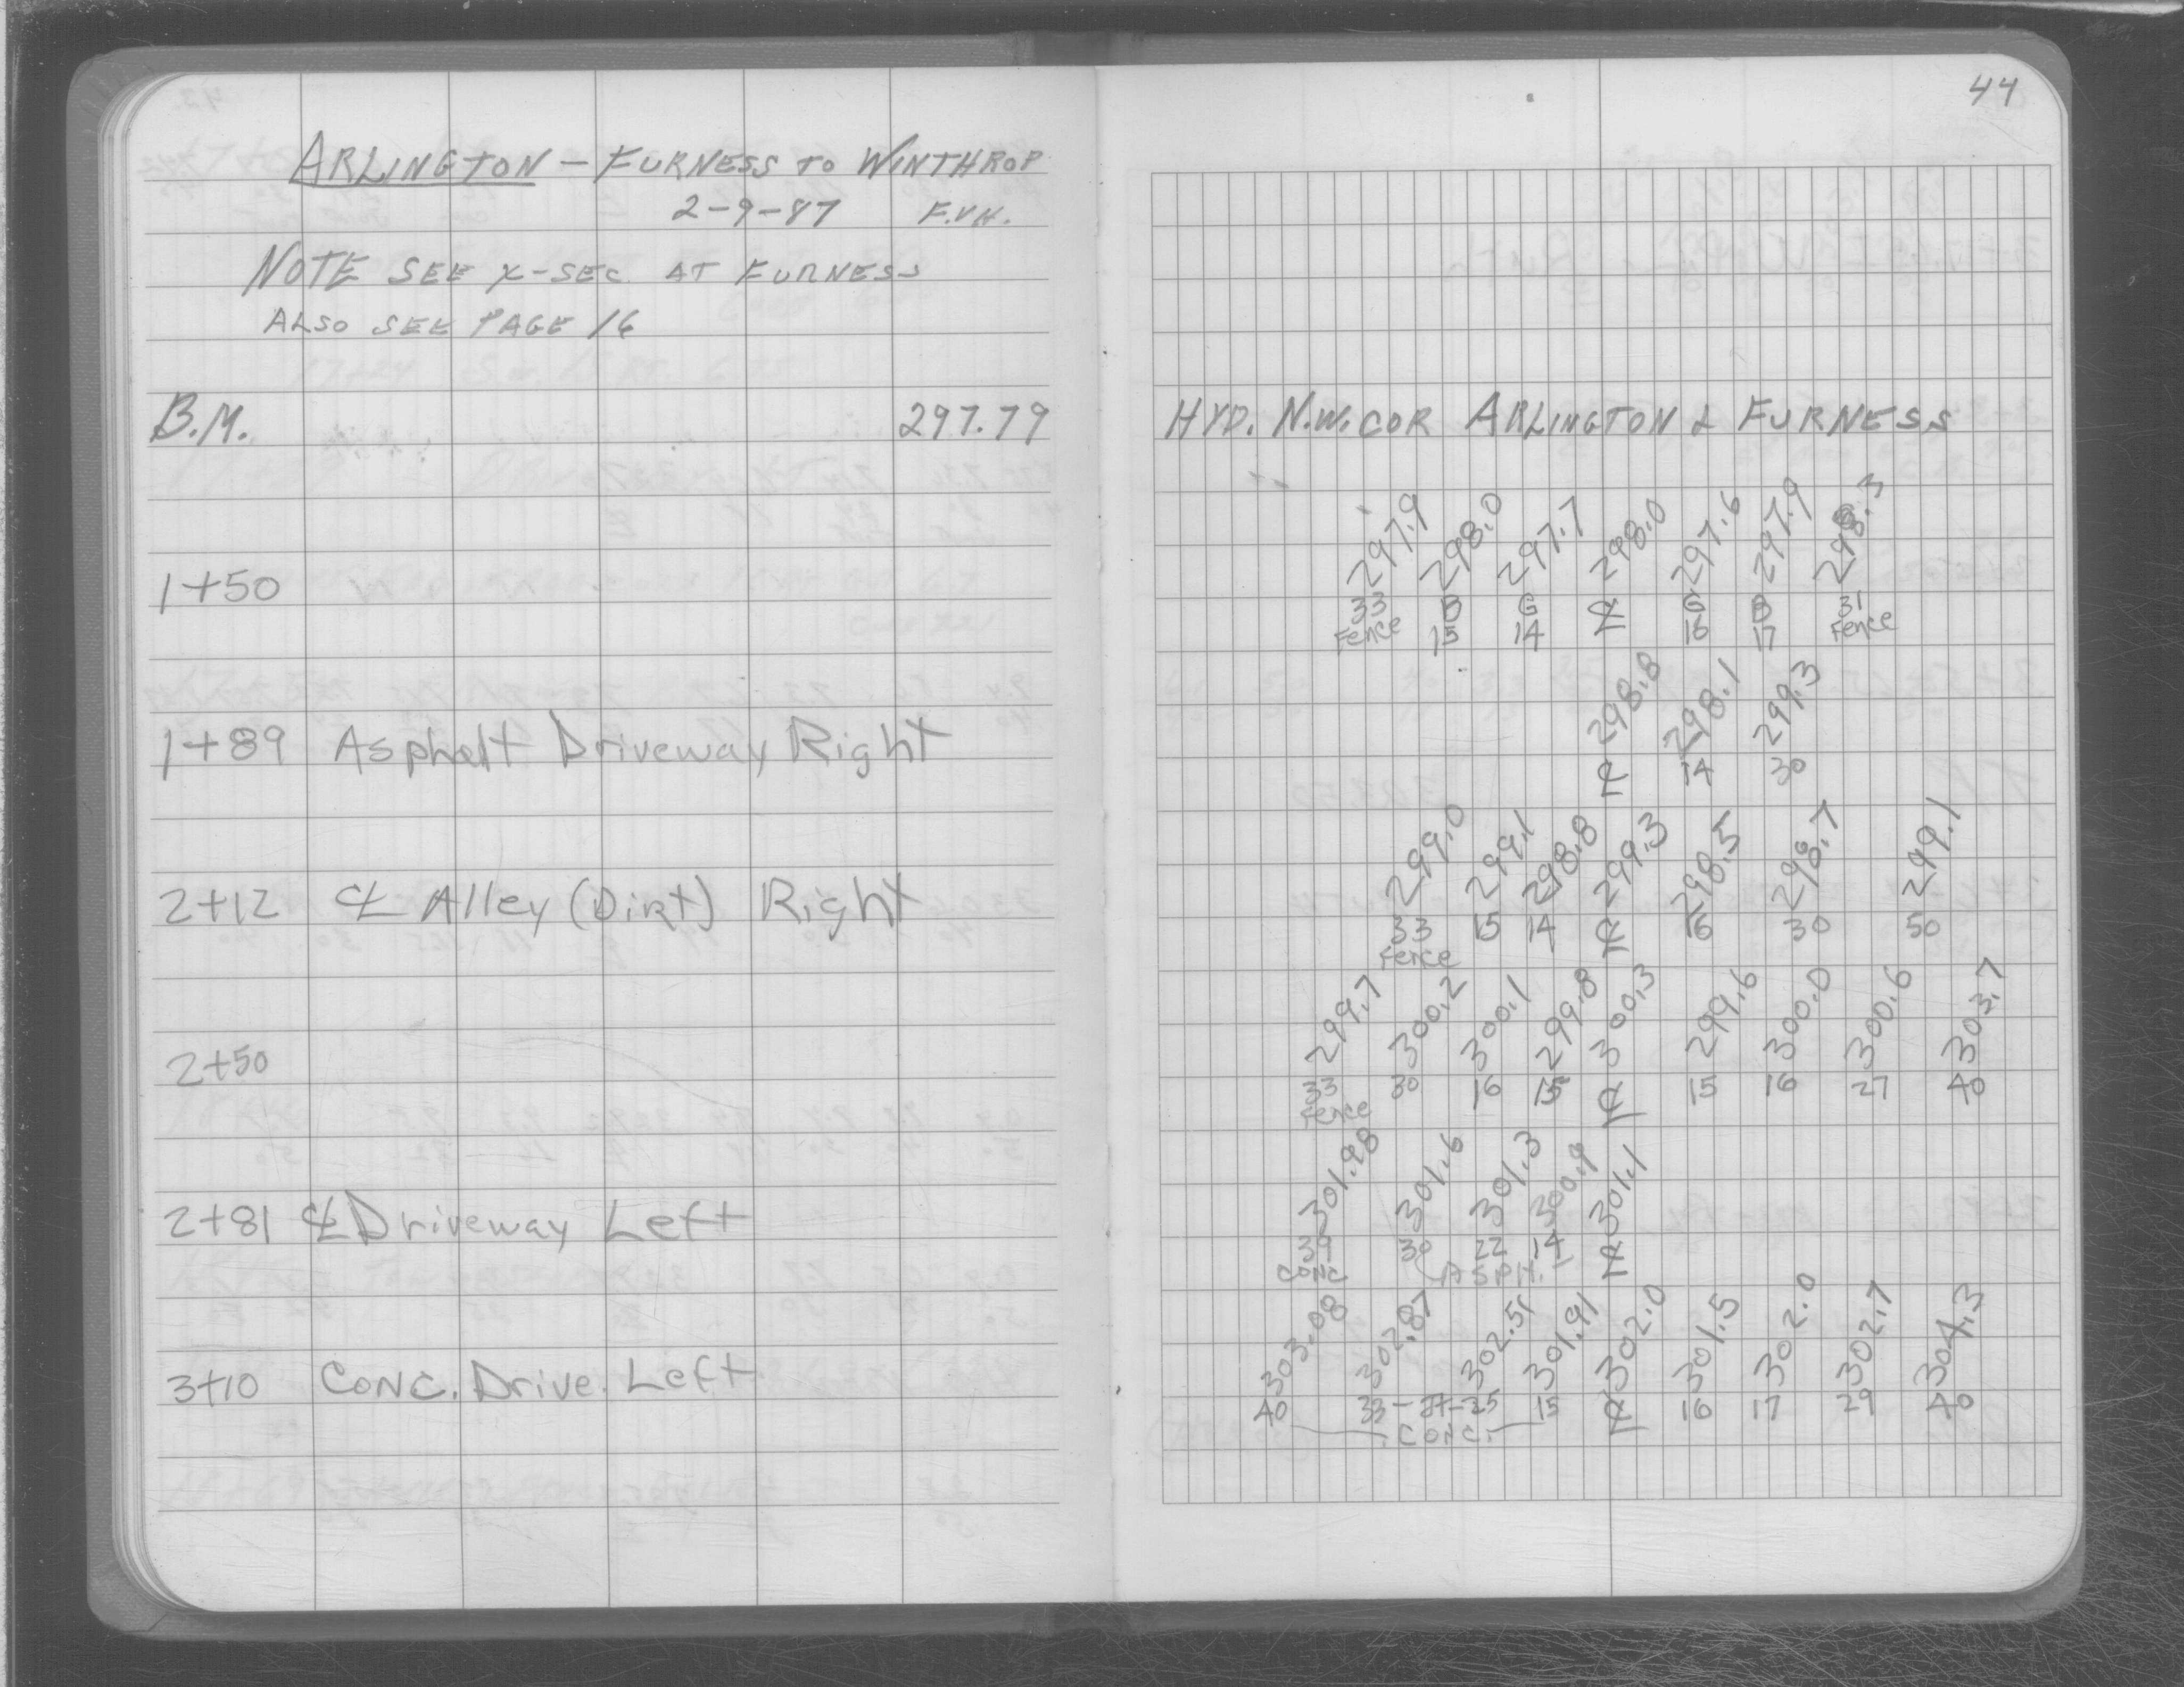 44
ARLINGTON — FURNESS TO WINTHROP
2-9-87 F.V.H.
NOTE SEE X-SEC. AT FURNESS
ALSO SEE PAGE 16
B.M. 297.79 HYD. N.W. COR ARLINGTON & FURNESS
297.9 298.0 297.7 298.0 297.6 297.9 298.3
1+50
33 B G ℄ G B 31
Fence 15 14 16 17 Fence
298.8 298.1 299.3
1+89 Asphalt Driveway Right
℄ 14 30
299.0 299.1 298.8 299.3 298.5 298.7 299.1
2+12 ℄ Alley (Dirt) Right
33 15 14 ℄ 16 30 50
Fence
299.7 300.2 300.1 299.8 300.3 299.6 300.0 300.6 303.7
2+50
33 30 16 15 ℄ 15 16 27 40
Fence
301.98 301.6 301.3 300.9 301.1
2+81 ℄ Driveway Left
39 30 22 14 ℄
CONC ASPH.
303.08 302.87 302.51 301.91 302.0 301.5 302.0 302.7 304.3
3+10 CONC. Drive. Left
40 33-27-25 15 ℄ 16 17 29 40
CONC.